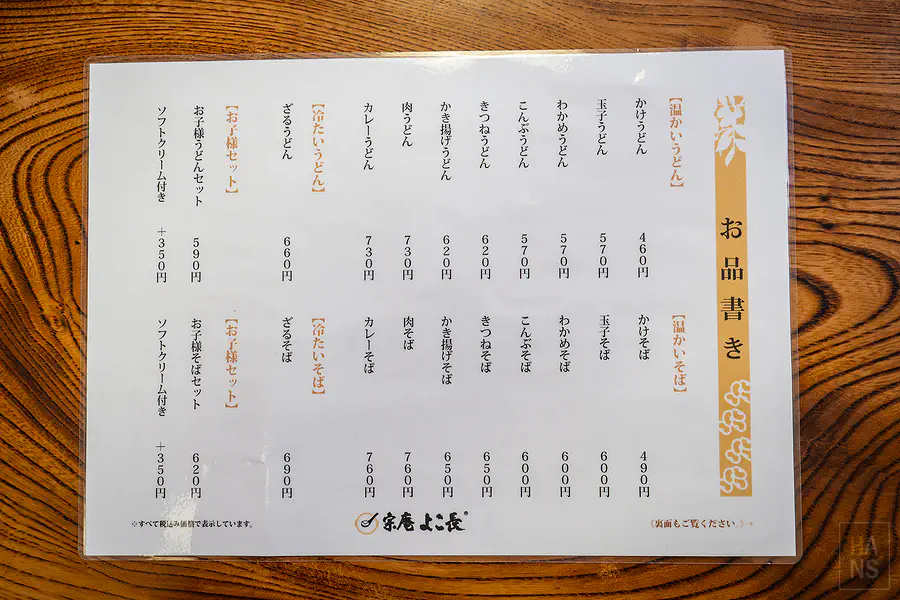 お品書き
【温かいうどん】
かけうどん 460円
玉子うどん 570円
わかめうどん 570円
こんぶうどん 570円
きつねうどん 620円
かき揚げうどん 620円
肉うどん 730円
カレーうどん 730円
【冷たいうどん】
ざるうどん 660円
【お子様セット】
お子様うどんセット 590円
ソフトクリーム付き +350円
【温かいそば】
かけそば 490円
玉子そば 600円
わかめそば 600円
こんぶそば 600円
きつねそば 650円
かき揚げそば 650円
肉そば 760円
カレーそば 760円
【冷たいそば】
ざるそば 690円
【お子様セット】
お子様そばセット 620円
ソフトクリーム付き +350円
《裏面もご覧ください。》→
宗庵 よこ長
※すべて税込み価格で表示しています。
HANS